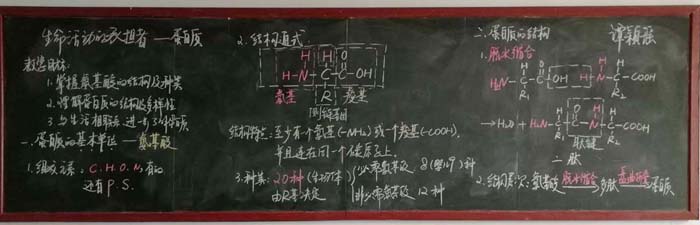 生命活动的承担者——蛋白质
教学目标:
1. 掌握氨基酸的结构及种类
2. 理解蛋白质的结构及多样性
3. 与生活相联系,进一步
一. 蛋白质的基本单位——氨基酸
1. 组成元素: C.H.O.N, 有的
还有P.S.
2. 结构通式:
H H O
H-N-C-C-OH
氨基 R 羧基
侧链基团
结构特点: 至少有个氨基(-NH₂)或一个羧基(-COOH),
并且连在同一个碳原子上.
3. 种类: 20种
由R基决定
必需氨基酸 8种
非必需氨基酸 12种
二. 蛋白质的结构
谭颖
1. 脱水缩合
H O H H
H₂N-C-C-OH H-N-C-COOH
R₁ R₂
→H₂O + H₂N-C-C-N-C-COOH
R₁ 肽键 R₂
二肽
2. 结构层次: 氨基酸 脱水缩合→ 多肽 盘曲折叠→ 蛋白质